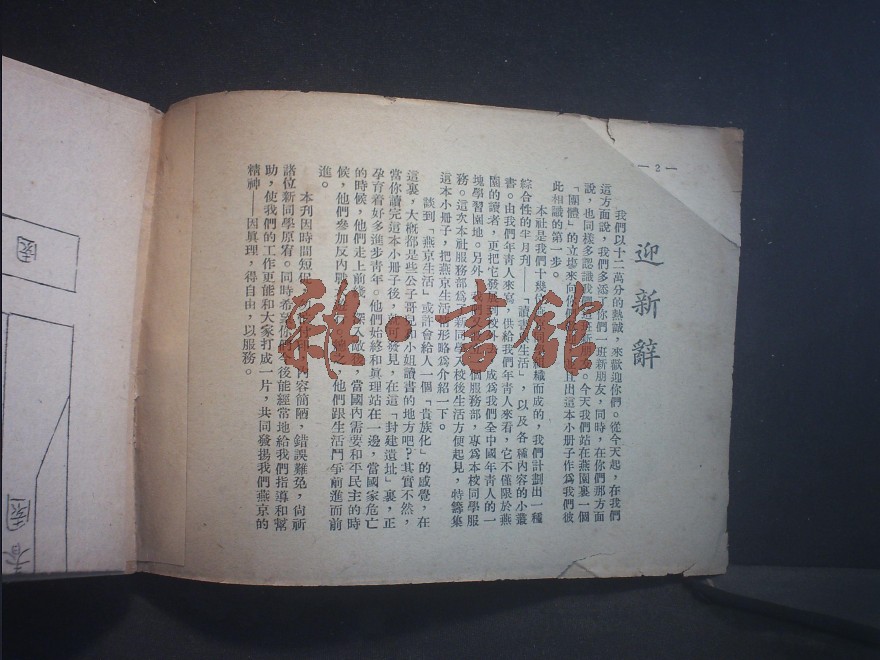 —2—
迎新辭
我們以十二萬分的熱誠，來歡迎你們。從今天起，在我們
這方面說，我們多添了你們一班新朋友，同時，在你們那方面
說，也同樣多認識我 今天我們站在燕園裏一個
「團體」的立塲來向你 出這本小册子作爲我們彼
此相識的第一步。
本社是我們十幾 組織而成的，我們計劃出一種
綜合性的半月刊——「讀 生活」，以及各種內容的小叢
書。由我們年青人來寫，供給我們年青人來看，它不僅限於燕
園的讀者，更把它發 到校外 成爲我們全中國年青人的一
塊學習園地。另外 個服務部，專爲本校同學服
務。這次本社服務部爲 新同學入校後生活方便起見，特籌集
這本小册子，把燕京生活情形略爲介紹一下。
談到「燕京生活」或許會給人一個「貴族化」的感覺，在
這裏，大概都是些公子哥兒和小姐讀書的地方吧？其實不然，
當你讀完這本小册子後， 發見，在這「封建遺址」裏，正
孕育着好多進步靑年。他們始終和眞理站在一邊，當國家危亡
的時候，他們走上前綫， 入敵後，當國內需要和平民主的時
候，他們參加反內戰 他們跟生活鬥爭前進而前
進。
本刊因時間短促 內容簡陋，錯誤難免，尙祈
諸位新同學原宥。同時希望你們今後能經常地給我們指導和幫
助，使我們的工作更能和大家打成一片，共同發揚我們燕京的
精神——因眞理，得自由，以服務。
雜·書館